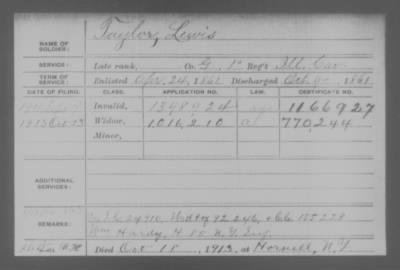 Taylor, Lewis
NAME OF SOLDIER:
SERVICE: Late rank, Co. G, 1st Reg't Ill. Cav.
TERM OF SERVICE: Enlisted Apr. 24, 1861 Discharged Oct. 9, 1861
DATE OF FILING. CLASS. APPLICATION NO. LAW. CERTIFICATE NO.
Invalid, 1398924 1166927
1913 Oct 23 Widow, 1016210 770244
Minor,
ADDITIONAL SERVICES:
REMARKS: 24910, 92246, 155228
Hardy, N.Y. Inf.
Died Oct 18, 1913, at Hornell, N.Y.